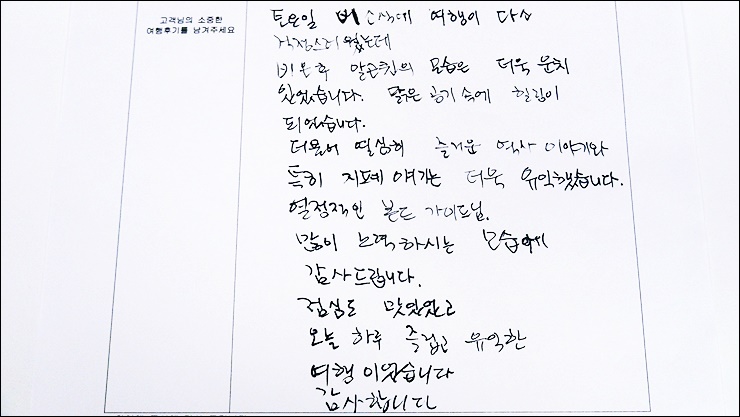 고객님의 소중한
여행후기를 남겨주세요
토요일 비 소식에 여행이 다소
걱정스러웠는데
비온후 말끔한 모습은 더욱 운치
있었습니다. 맑은 공기 속에 힐링이
되었습니다.
더불어 열심히 즐거운 역사 이야기와
특히 지폐 얘기는 더욱 유익했습니다.
열정적인 본드 가이드님.
많이 노력하시는 모습에
감사드립니다.
점심도 맛있었고
오늘 하루 즐겁고 유익한
여행이었습니다
감사합니다